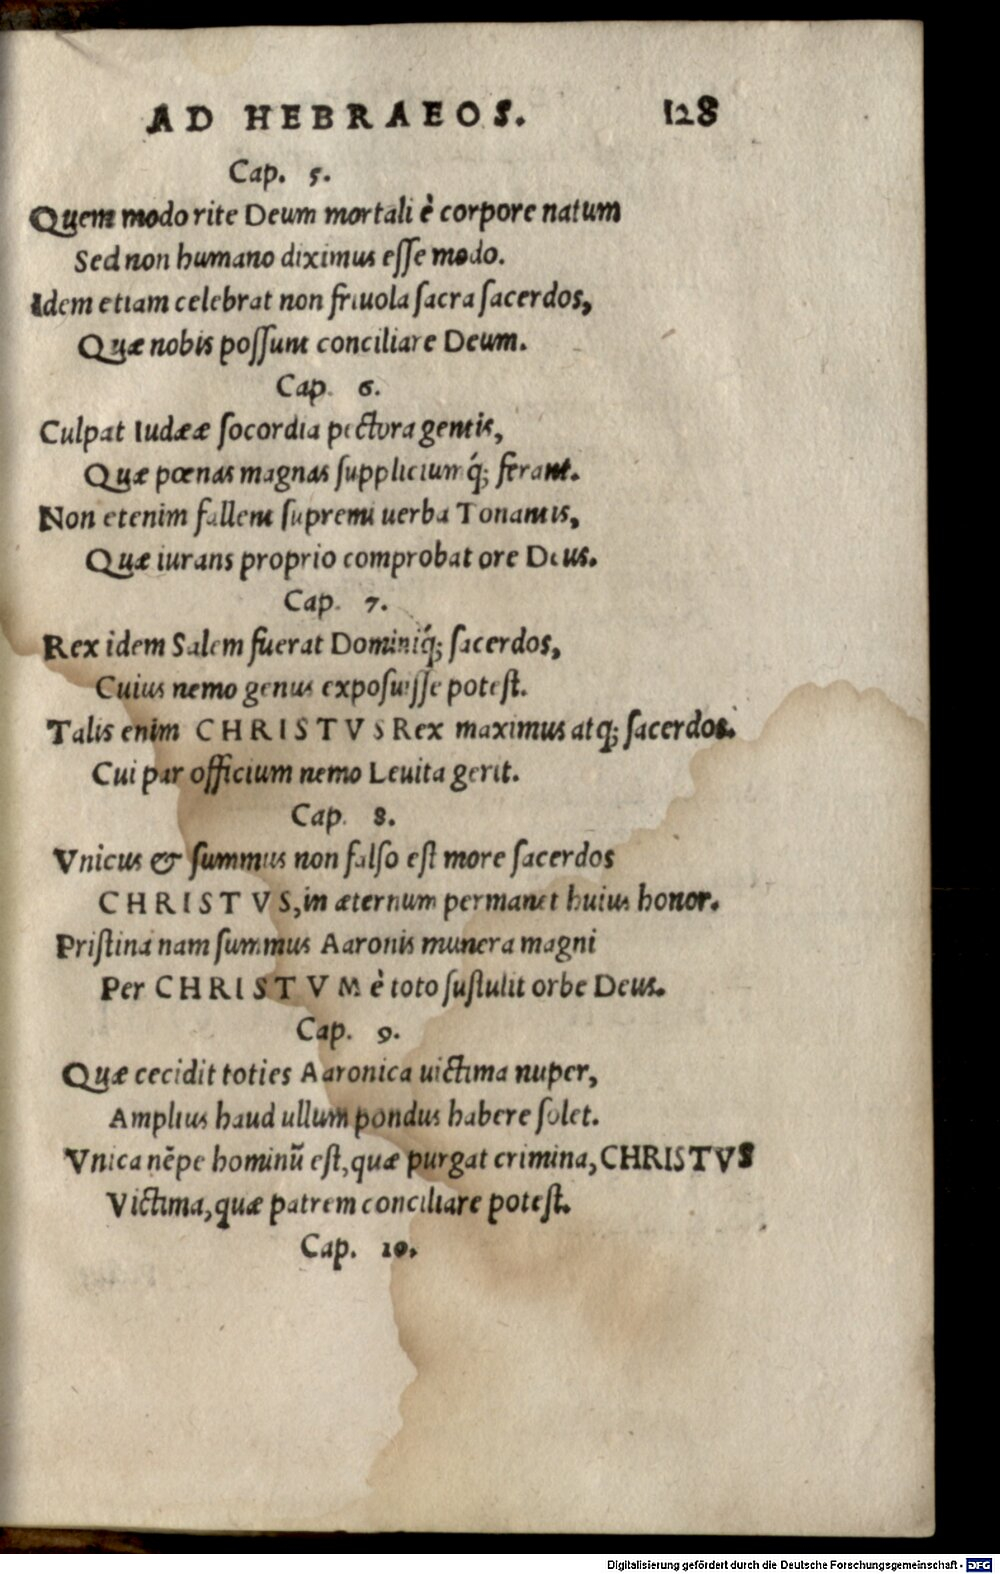 AD HEBRAEOS. 128
Cap. 5.
Quem modo rite Deum mortali è corpore natum
Sed non humano diximus esse modo.
Idem etiam celebrat non friuola sacra sacerdos,
Quæ nobis possunt conciliare Deum.
Cap. 6.
Culpat Iudææ socordia pectora gentis,
Quæ pœnas magnas suppliciumq́; ferant.
Non etenim fallent supremi uerba Tonantis,
Quæ iurans proprio comprobat ore Deus.
Cap. 7.
Rex idem Salem fuerat Dominiq́; sacerdos,
Cuius nemo genus exposuisse potest.
Talis enim CHRISTVS Rex maximus atq; sacerdos.
Cui par officium nemo Leuita gerit.
Cap. 8.
Vnicus & summus non falso est more sacerdos
CHRISTVS, in æternum permanet huius honor.
Pristina nam summus Aaronis munera magni
Per CHRISTVM è toto sustulit orbe Deus.
Cap. 9.
Quæ cecidit toties Aaronica uictima nuper,
Amplius haud ullum pondus habere solet.
Vnica nēpe hominū est, quæ purgat crimina, CHRISTVS
Victima, quæ patrem conciliare potest.
Cap. 10.
Digitalisierung gefördert durch die Deutsche Forschungsgemeinschaft - DFG